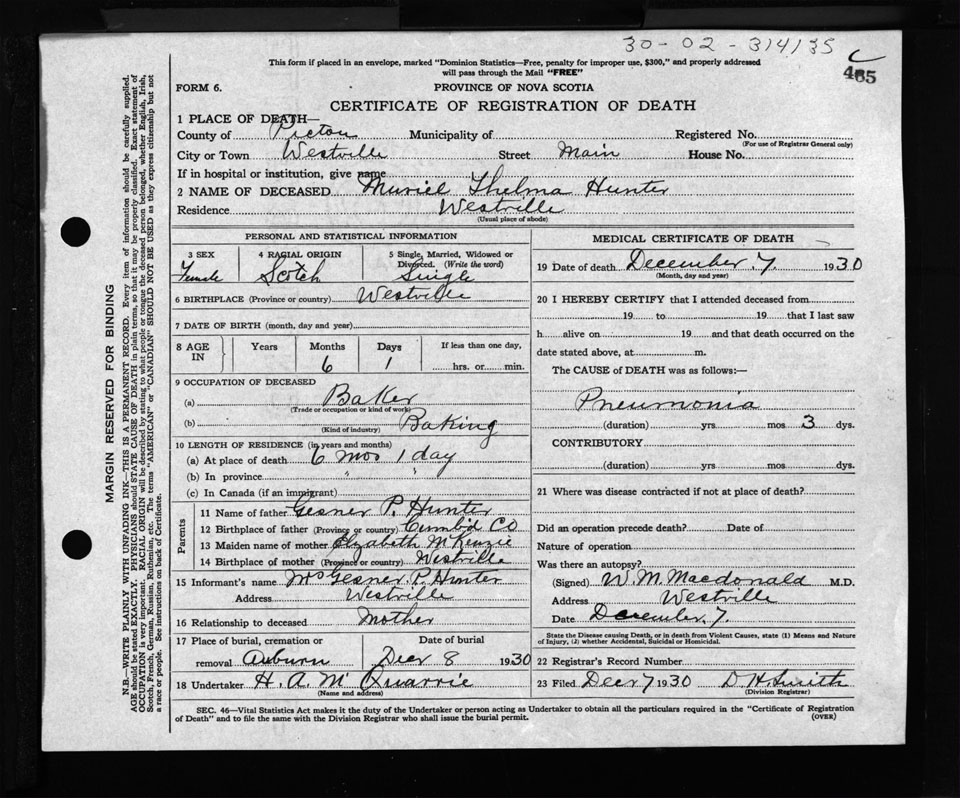 30-02-314135
C
465
This form if placed in an envelope, marked "Dominion Statistics—Free, penalty for improper use, $300," and properly addressed
will pass through the Mail "FREE"
FORM 6.
PROVINCE OF NOVA SCOTIA
CERTIFICATE OF REGISTRATION OF DEATH
1 PLACE OF DEATH—
County of Pictou Municipality of Registered No.
(For use of Registrar General only)
City or Town Westville Street Main House No.
If in hospital or institution, give name
2 NAME OF DECEASED Muriel Thelma Hunter
Residence Westville
(Usual place of abode)
PERSONAL AND STATISTICAL INFORMATION
3 SEX 4 RACIAL ORIGIN 5 Single, Married, Widowed or
Divorced. (Write the word)
Female Scotch Single
6 BIRTHPLACE (Province or country) Westville
7 DATE OF BIRTH (month, day and year)
8 AGE IN Years Months Days If less than one day,
6 1 hrs. or min.
9 OCCUPATION OF DECEASED
(a) Baker
(Trade or occupation or kind of work)
(b) Baking
(Kind of industry)
10 LENGTH OF RESIDENCE (in years and months)
(a) At place of death 6 mos 1 day
(b) In province " "
(c) In Canada (if an immigrant)
Parents
11 Name of father Gesner P. Hunter
12 Birthplace of father (Province or country) Cumb'd Co
13 Maiden name of mother Elyabeth McKenzie
14 Birthplace of mother (Province or country) Westville
15 Informant's name Mrs Gesner P. Hunter
Address Westville
16 Relationship to deceased Mother
17 Place of burial, cremation or Date of burial
removal Auburn Decr 8 1930
18 Undertaker H. A. McQuarrie
(Name and address)
MEDICAL CERTIFICATE OF DEATH
19 Date of death December 7 1930
(Month, day and year)
20 I HEREBY CERTIFY that I attended deceased from
19 to 19 that I last saw
h alive on 19 and that death occurred on the
date stated above, at m.
The CAUSE of DEATH was as follows:—
Pneumonia
(duration) yrs mos 3 dys.
CONTRIBUTORY
(duration) yrs mos dys.
21 Where was disease contracted if not at place of death?
Did an operation precede death? Date of
Nature of operation
Was there an autopsy?
(Signed) W. M. Macdonald M.D.
Address Westville
Date December, 7.
State the Disease causing Death, or in death from Violent Causes, state (1) Means and Nature
of Injury, (2) whether Accidental, Suicidal or Homicidal.
22 Registrar's Record Number
23 Filed Decr 7 1930 D H Smith
(Division Registrar)
SEC. 46—Vital Statistics Act makes it the duty of the Undertaker or person acting as Undertaker to obtain all the particulars required in the "Certificate of Registration
of Death" and to file the same with the Division Registrar who shall issue the burial permit.
(OVER)
MARGIN RESERVED FOR BINDING
N.B.—WRITE PLAINLY WITH UNFADING INK—THIS IS A PERMANENT RECORD. Every item of information should be carefully supplied.
AGE should be stated EXACTLY. PHYSICIANS should STATE CAUSE OF DEATH in plain terms, so that it may be properly classified. Exact statement of
OCCUPATION is very important. RACIAL ORIGIN will be described by stating to what people or tongue the deceased person belonged, whether English, Irish,
Scotch, French, German, Russian, Ruthenian, etc. The terms "AMERICAN" or "CANADIAN" SHOULD NOT BE USED as they express citizenship but not
a race or people. See instructions on back of Certificate.